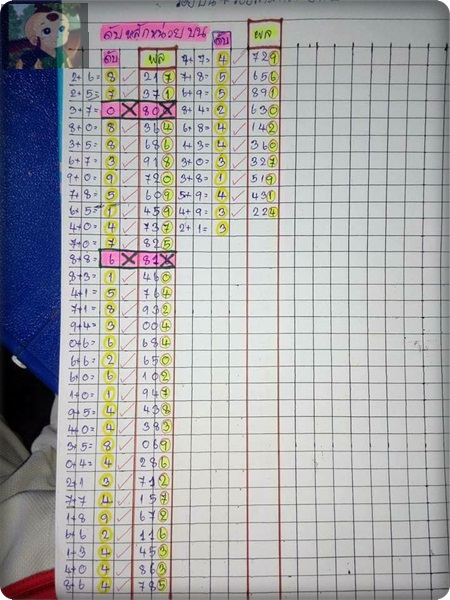 ดับหลักหน่วยบน ดับ ผล
ดับ ผล 7+7= 4 ✓ 729
2+6= 8 ✓ 217 7+8= 5 ✓ 656
2+5= 7 ✓ 371 6+9= 5 ✓ 891
3+7= 0 X 80X 8+4= 2 ✓ 630
8+0= 8 ✓ 364 6+8= 4 ✓ 142
3+5= 8 ✓ 686 1+3= 4 ✓ 360
6+7= 3 ✓ 918 3+0= 3 ✓ 327
9+0= 9 ✓ 720 3+8= 1 ✓ 519
7+8= 5 ✓ 609 5+9= 4 ✓ 431
6+5= 1 ✓ 459 4+9= 3 ✓ 224
4+0= 4 ✓ 737 2+1= 3
7+0= 7 ✓ 825
8+8= 6 X 81X
8+3= 1 ✓ 460
4+1= 5 ✓ 764
7+1= 8 ✓ 932
9+4= 3 ✓ 004
0+6= 6 ✓ 684
6+6= 2 ✓ 650
6+0= 6 ✓ 102
1+0= 1 ✓ 947
9+5= 4 ✓ 438
4+0= 4 ✓ 383
3+5= 8 ✓ 069
0+4= 4 ✓ 286
2+1 3 ✓ 712
7+7 4 ✓ 157
1+8 9 ✓ 672
6+6 2 ✓ 116
1+3 4 ✓ 453
4+0 4 ✓ 863
8+6 4 ✓ 785